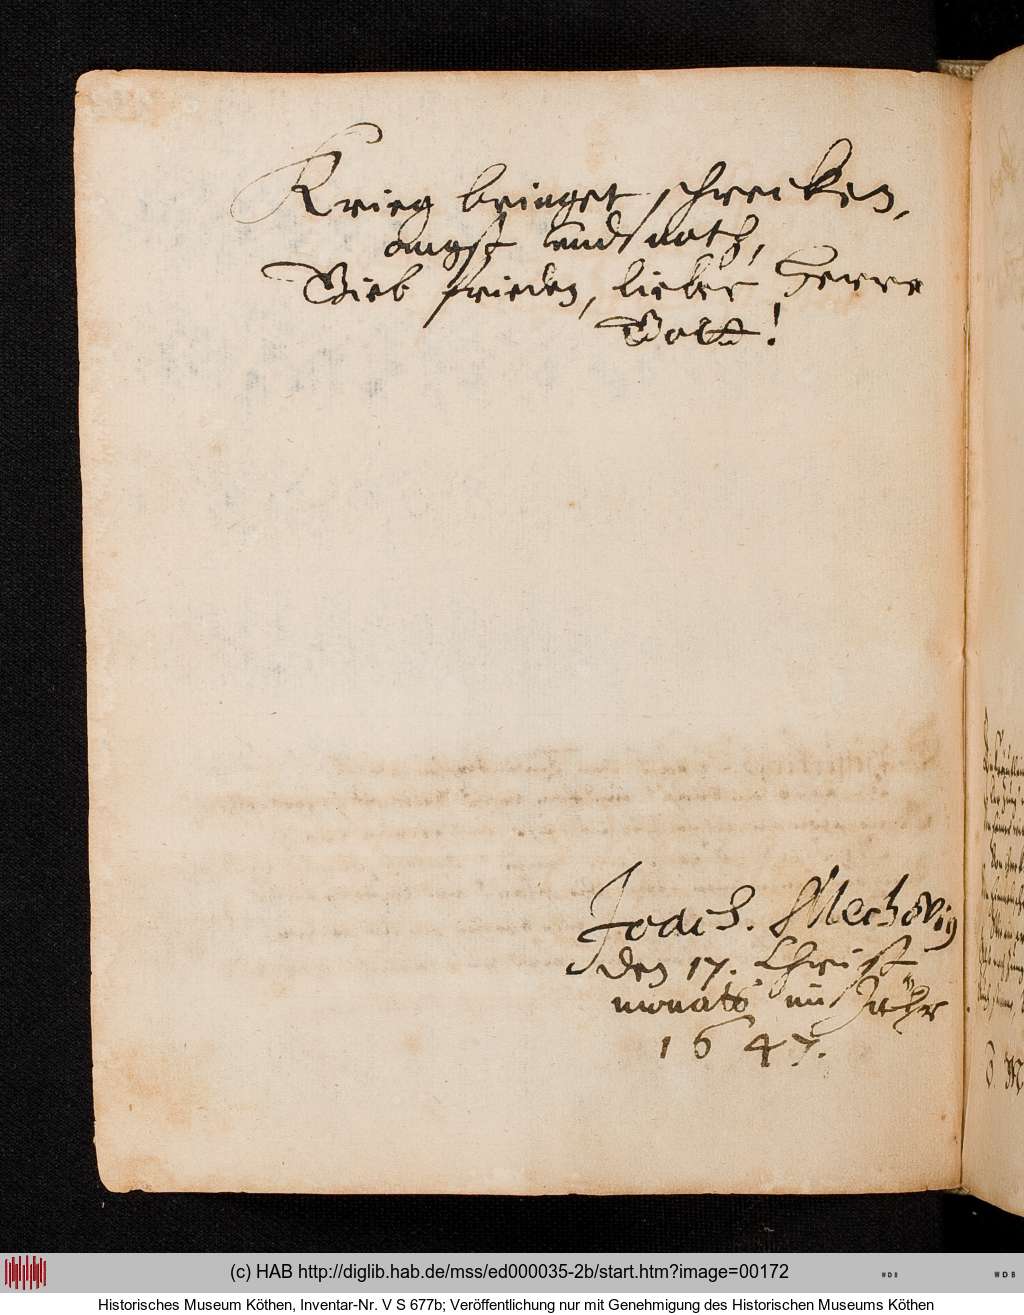 Krieg bringet schrecken,
angst und noth,
Gieb frieden, lieber Herre
Gott!
Joach. Mechovig
den 17. Christ
monats im Jahr
1647.
(c) HAB http://diglib.hab.de/mss/ed000035-2b/start.htm?image=00172
WDB
WDB
Historisches Museum Köthen, Inventar-Nr. V S 677b; Veröffentlichung nur mit Genehmigung des Historischen Museums Köthen